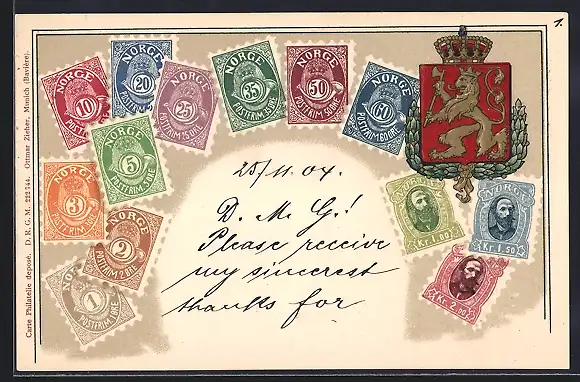 1.
Carte Philatelie deposé. D. R. G. M. 222744. Ottmar Zieher, Munich (Bavière).
NORGE
10
POSTFRIM
NORGE
20
NORGE
25
POSTFRIM. 25 ØRE
NORGE
35
POSTFRIM. 35 ØRE
NORGE
50
POSTFRIM. 50 ØRE
NORGE
60
POSTFRIM. 60 ØRE
NORGE
5
POSTFRIM. 5 ØRE
NORGE
3
POSTFRIM. 3 ØRE
NORGE
2
POSTFRIM 2 ØRE
NORGE
1
POSTFRIM. 1 ØRE
NORGE
Kr. 1.00
NORGE
Kr. 1.50
Kr. 2.00
25/11.04.
D. M. G.!
Please receive
my sincerest
thanks for